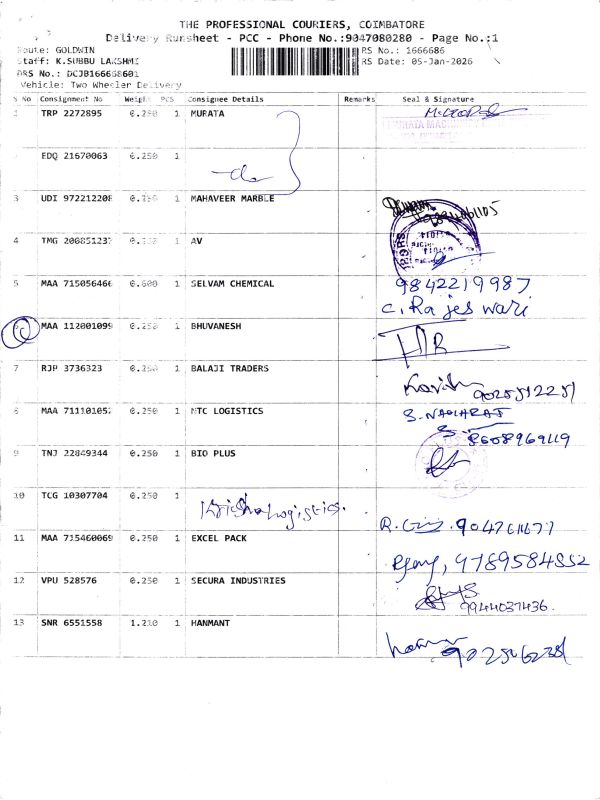 THE PROFESSIONAL COURIERS, COIMBATORE
Delivery Runsheet - PCC - Phone No.:9047080280 - Page No.:1
Route: GOLDWIN
RS No.: 1666686
Staff: K.SUBBU LAKSHMI
RS Date: 05-Jan-2026
DRS No.: DCJB166668601
Vehicle: Two Wheeler Delivery
S No Consignment No Weight PCS Consignee Details Remarks Seal & Signature
1 TRP 2272895 0.250 1 MURATA
EDQ 21670063 0.250 1
3 UDI 97221220 1 MAHAVEER MARBLE
4 TMG 20885123 1 AV
5 MAA 71505646 0.600 1 SELVAM CHEMICAL 9842219987
C. Rajeswari
6 MAA 112001099 0.250 1 BHUVANESH
7 RJP 3736323 0.250 1 BALAJI TRADERS
9025512251
8 MAA 71110105 0.250 1 NTC LOGISTICS S. NAGARAJ
8608969119
9 TNJ 22849344 0.250 1 BIO PLUS
10 TCG 10307704 0.250 1 Krishna Logistics.
9047611677
11 MAA 735460069 0.250 1 EXCEL PACK
9789584852
12 VPU 528576 0.250 1 SECURA INDUSTRIES
9944037436.
13 SNR 6551558 1.210 1 HANMANT